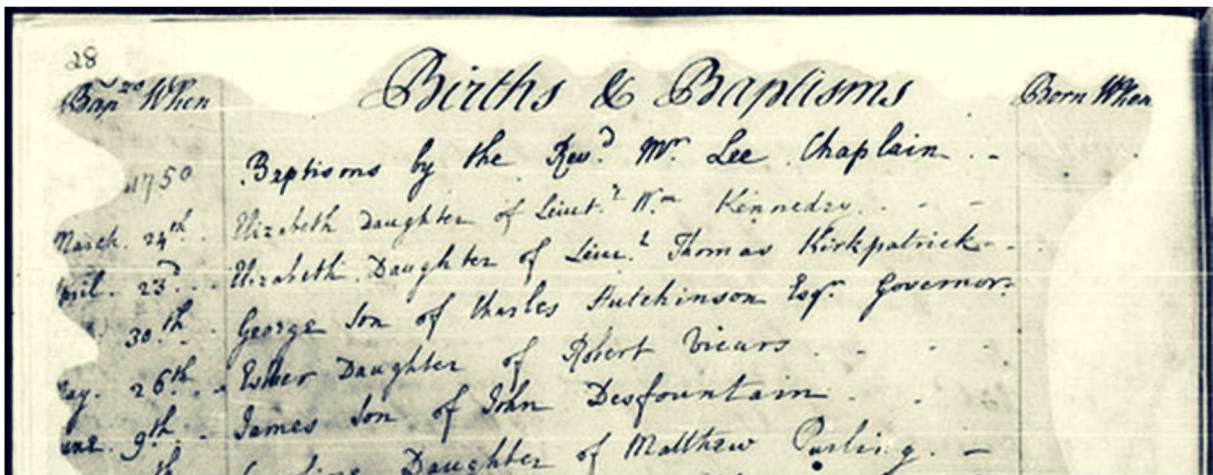 28
Bap^zd When Births & Baptisms Born When
1750 Baptisms by the Rev^d. M^r. Lee Chaplain
March. 24^th. Elizabeth Daughter of Lieut.^t W^m Kennedy
23^d. Elizabeth Daughter of Lieu.^t Thomas Kirkpatrick
30^th. George Son of Charles Hutchinson Esq^r. Governor
26^th. Esther Daughter of Robert Vicars
9^th. James Son of John Desfountain
Daughter of Matthew Purling.